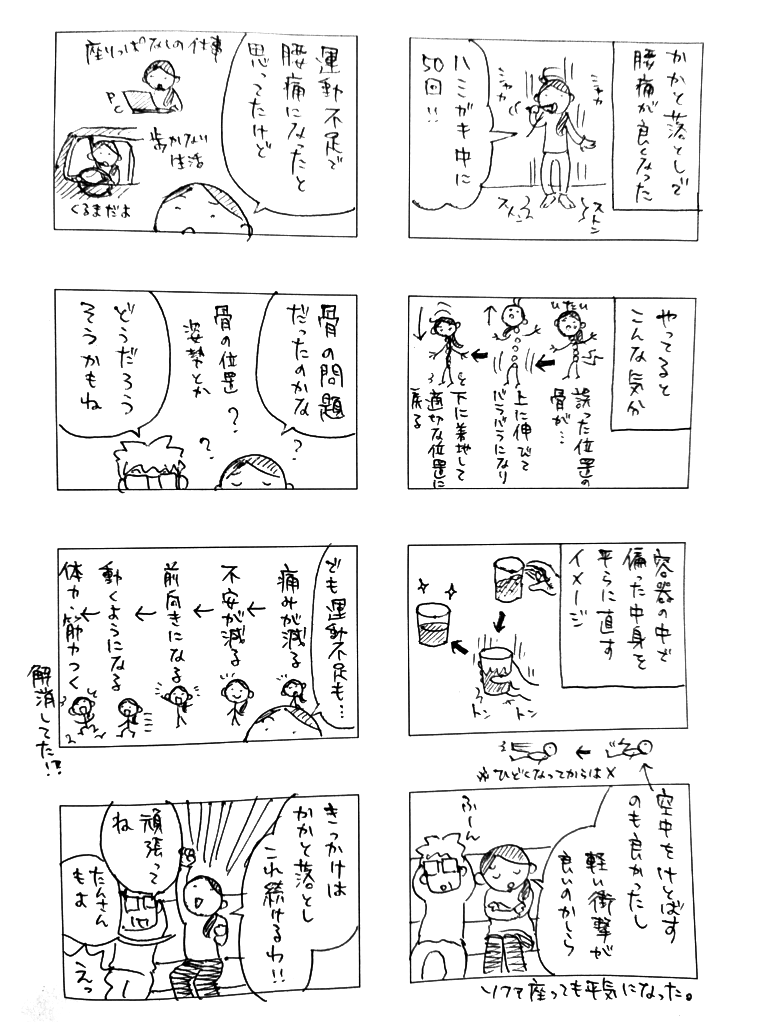 かかと落としで
腰痛が良くなった
シャカ
シャカ
ハミガキ中に
50回!!
ストン
ストン
やってると
こんな気分
いたい
誤った位置の
骨が…
上に伸びて
バラバラになり
下に着地して
適切な位置に
戻る
容器の中で
偏った中身を
平らに直す
イメージ
トン
トン
※ひどくなってからは×
空中をけとばす
のも良かったし
軽い衝撃が
良いのかしら
ふーん
ソファ座っても平気になった。
運動不足で
腰痛になったと
思ってたけど
座りっぱなしの仕事
PC
歩かない
生活
くるまだよ
骨の問題
だったのかな
骨の位置
姿勢とか
?
?
?
どうだろう
そうかもね
でも運動不足も…
痛みが減る
不安が減る
前向きになる
動くようになる
体力・筋力つく
解消してた!?
きっかけは
かかと落とし
これ続けるわ!!
頑張って
ね
たんさん
もよ
えっ